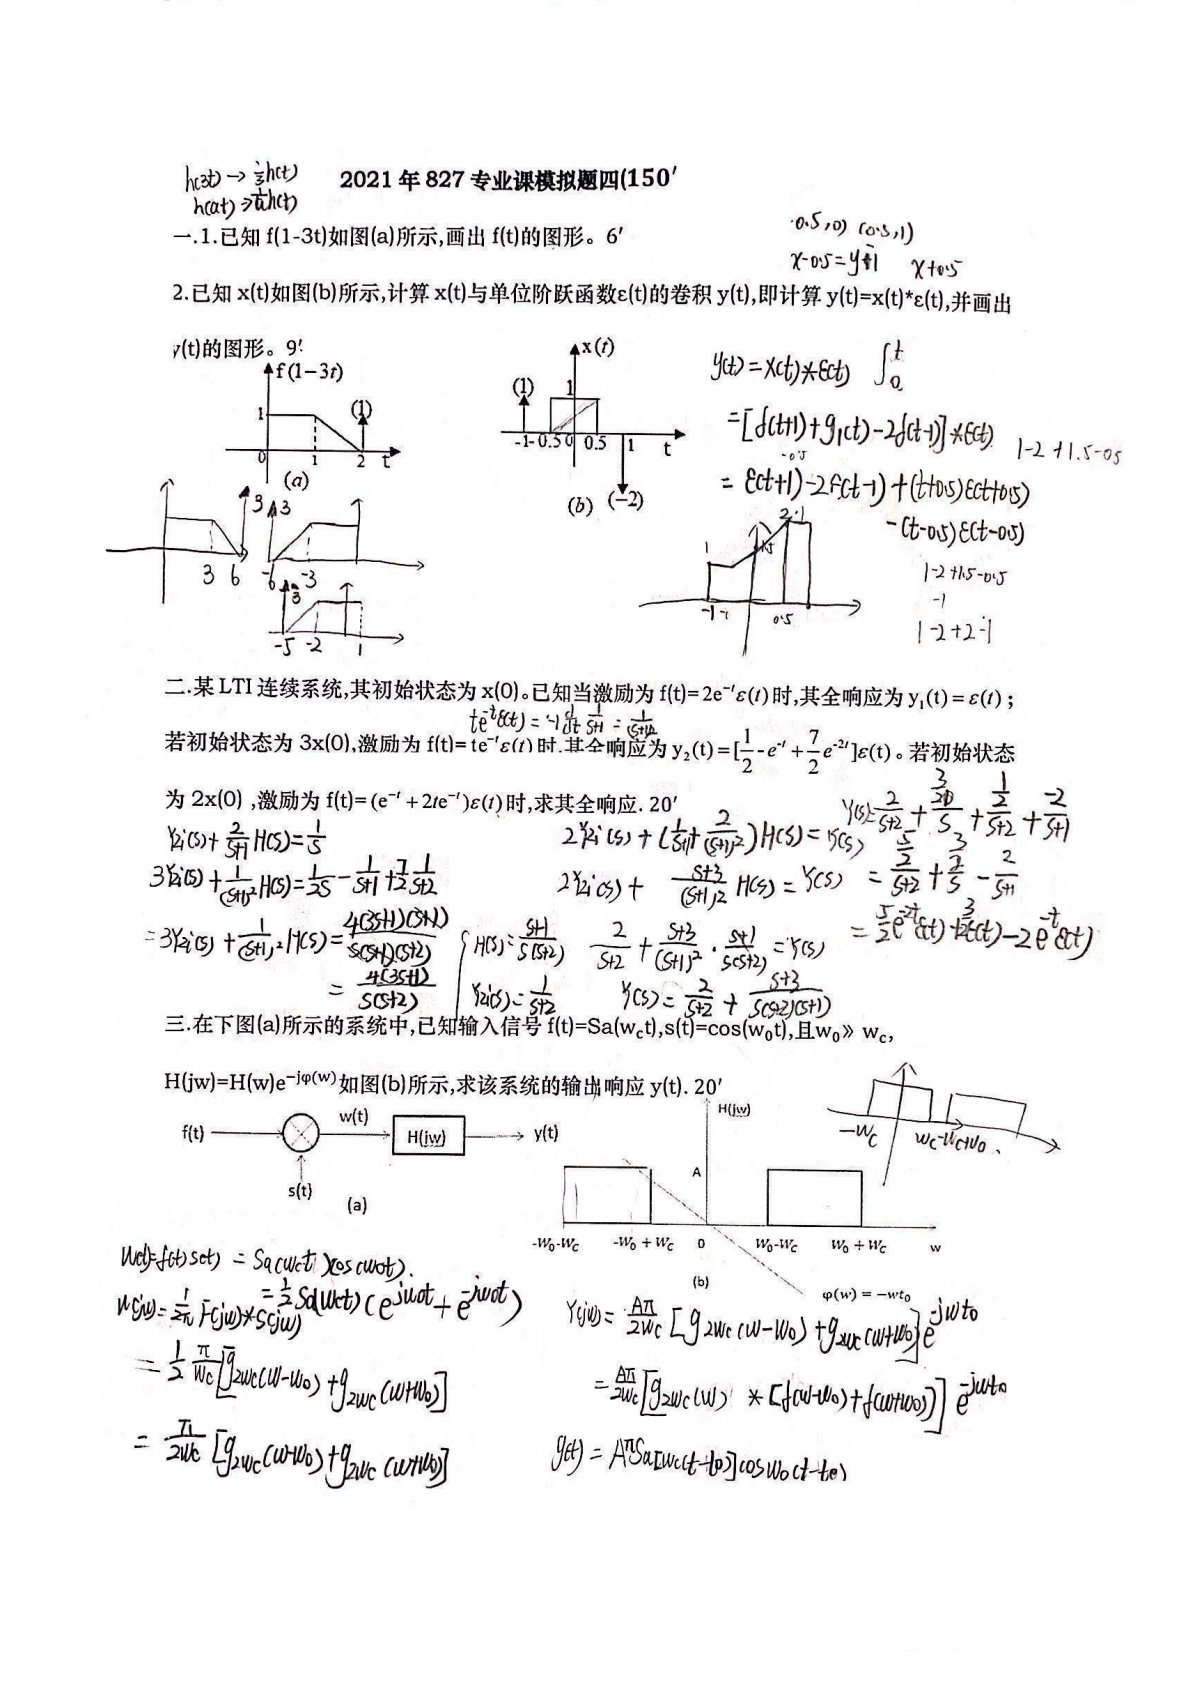 h(3t) → 1/3 h(t)
h(at) → 1/a h(t)
2021 年 827 专业课模拟题四(150′
一.1.已知 f(1-3t)如图(a)所示,画出 f(t)的图形。6′
-0.5,0) (0.5,1)
x-0.5=y+1 x+0.5
2.已知 x(t)如图(b)所示,计算 x(t)与单位阶跃函数ε(t)的卷积 y(t),即计算 y(t)=x(t)*ε(t),并画出
y(t)的图形。9′
f(1-3t)
1
(1)
0 1 2 t
(a)
x(t)
(1)
1
-1 -0.5 0 0.5 1 t
(b) (-2)
y(t)=x(t)*ε(t) ∫
=[δ(t+1)+g₁(t)-2δ(t-1)]*ε(t)
1-2+1.5-0.5
-0.5
= ε(t+1)-2ε(t-1)+(t+0.5)ε(t+0.5)
-(t-0.5)ε(t-0.5)
1-2+1.5-0.5
-1
1-2+2-1
3 3
3 6 -6 -3
3
-5 -2 1
2
1
-1 0.5
二.某 LTI 连续系统,其初始状态为 x(0)。已知当激励为 f(t)= 2e⁻ᵗε(t) 时,其全响应为 y₁(t) = ε(t) ;
te⁻ᵗε(t) = -1 d/dt 1/(s+1) = 1/(s+1)²
若初始状态为 3x(0),激励为 f(t)= te⁻ᵗε(t) 时.其全响应为 y₂(t) = [1/2 - e⁻ᵗ + 7/2 e⁻²ᵗ]ε(t) 。若初始状态
为 2x(0) ,激励为 f(t)= (e⁻ᵗ + 2te⁻ᵗ)ε(t) 时,求其全响应. 20′
Yzi(s)+ 2/(s+1) H(s)= 1/s
3Yzi(s)+ 1/(s+1)² H(s)= 1/2s - 1/(s+1) + 7/2 1/(s+2)
=3Yzi(s) + 1/(s+1)² H(s)= 4(3s+1)(s+1)/s(s+1)(s+2)
= 4(3s+1)/s(s+2)
H(s)= (s+1)/s(s+2)
Yzi(s)= 1/(s+2)
2Yzi(s) + (1/(s+1) + 2/(s+1)²)H(s)= Y(s)
2Yzi(s) + (s+3)/(s+1)² H(s) = Y(s)
2/(s+2) + (s+3)/(s+1)² · (s+1)/s(s+2) = Y(s)
Y(s)= 2/(s+2) + (s+3)/s(s+2)(s+1)
Y(s)= 2/(s+2) + 3/2/s + 1/2/(s+2) + -2/(s+1)
= 5/2/(s+2) + 3/2/s - 2/(s+1)
= 5/2 e⁻²ᵗε(t)+3/2 ε(t)-2e⁻ᵗε(t)
三.在下图(a)所示的系统中,已知输入信号 f(t)=Sa(w_ct),s(t)=cos(w₀t),且w₀》 w_c,
H(jw)=H(w)e^{-jφ(w)}如图(b)所示,求该系统的输出响应 y(t). 20′
f(t) w(t) H(jw) y(t)
s(t)
(a)
H(jw)
A
-W₀-Wc -W₀ + Wc 0 W₀-Wc W₀ + Wc w
(b)
φ(w) = -wt₀
-Wc Wc -Wc+W₀
w(t)=f(t)s(t) = Sa(wct)cos(w₀t).
= 1/2 Sa(wct)(e^{jw₀t}+e^{-jw₀t})
W(jw)= 1/2π F(jw)*S(jw)
= 1/2 π/wc [g2wc(w-w₀)+g2wc(w+w₀)]
= π/2wc [g2wc(w-w₀)+g2wc(w+w₀)]
Y(jw)= Aπ/2wc [g2wc(w-w₀)+g2wc(w+w₀)]e^{-jwt₀}
= Aπ/2wc [g2wc(w) * [δ(w-w₀)+δ(w+w₀)]] e^{-jwt₀}
y(t) = AπSa[wc(t-t₀)]cosw₀(t-t₀)